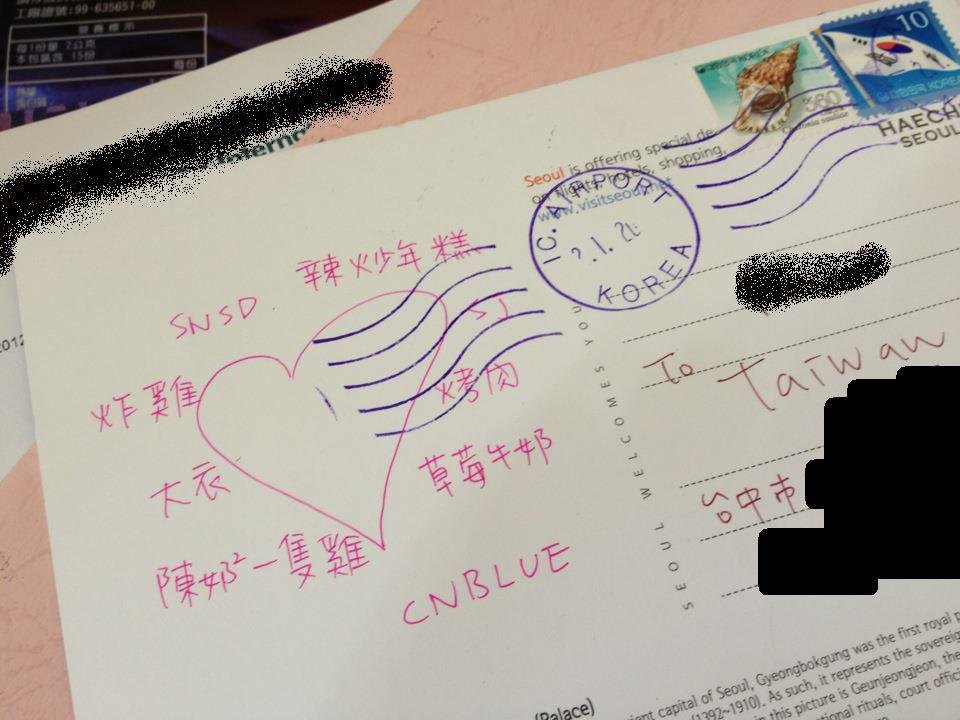 工廠證號:99-635651-00
每1份量 2公克
本包裝含 15份
每份
2012
10
KOREA
360
HAECHI
SEOUL
Seoul is offering special de
on flights, hotels, shopping,
www.visitseoul.net
I.C. AIRPORT
KOREA
辣炒年糕
SNSD.
SJ
炸雞
烤肉
大衣
草莓牛奶
陳奶²一隻雞
CNBLUE
SEOUL WELCOMES YOU
To Taiwan
台中市
(Palace)
ient capital of Seoul, Gyeongbokgung was the first royal p
(1392~1910). As such, it represents the sovereig
in this picture is Geunjeongjeon, the
tional rituals, court offici